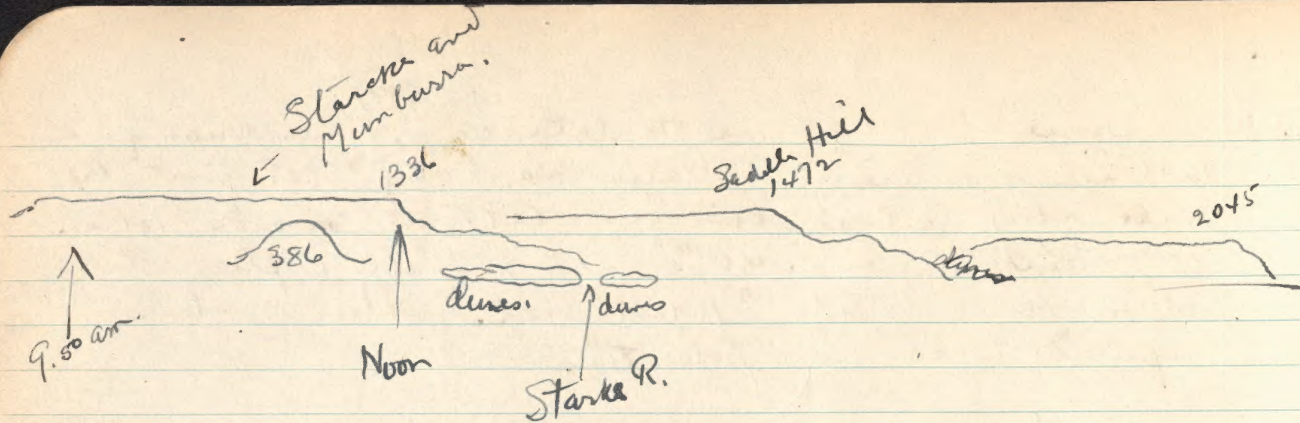 Starcke and
Munburra.
1336
Saddle Hill
1472
2045
386
dunes.
dunes
dunes
9.50 am.
Noon
Starke R.